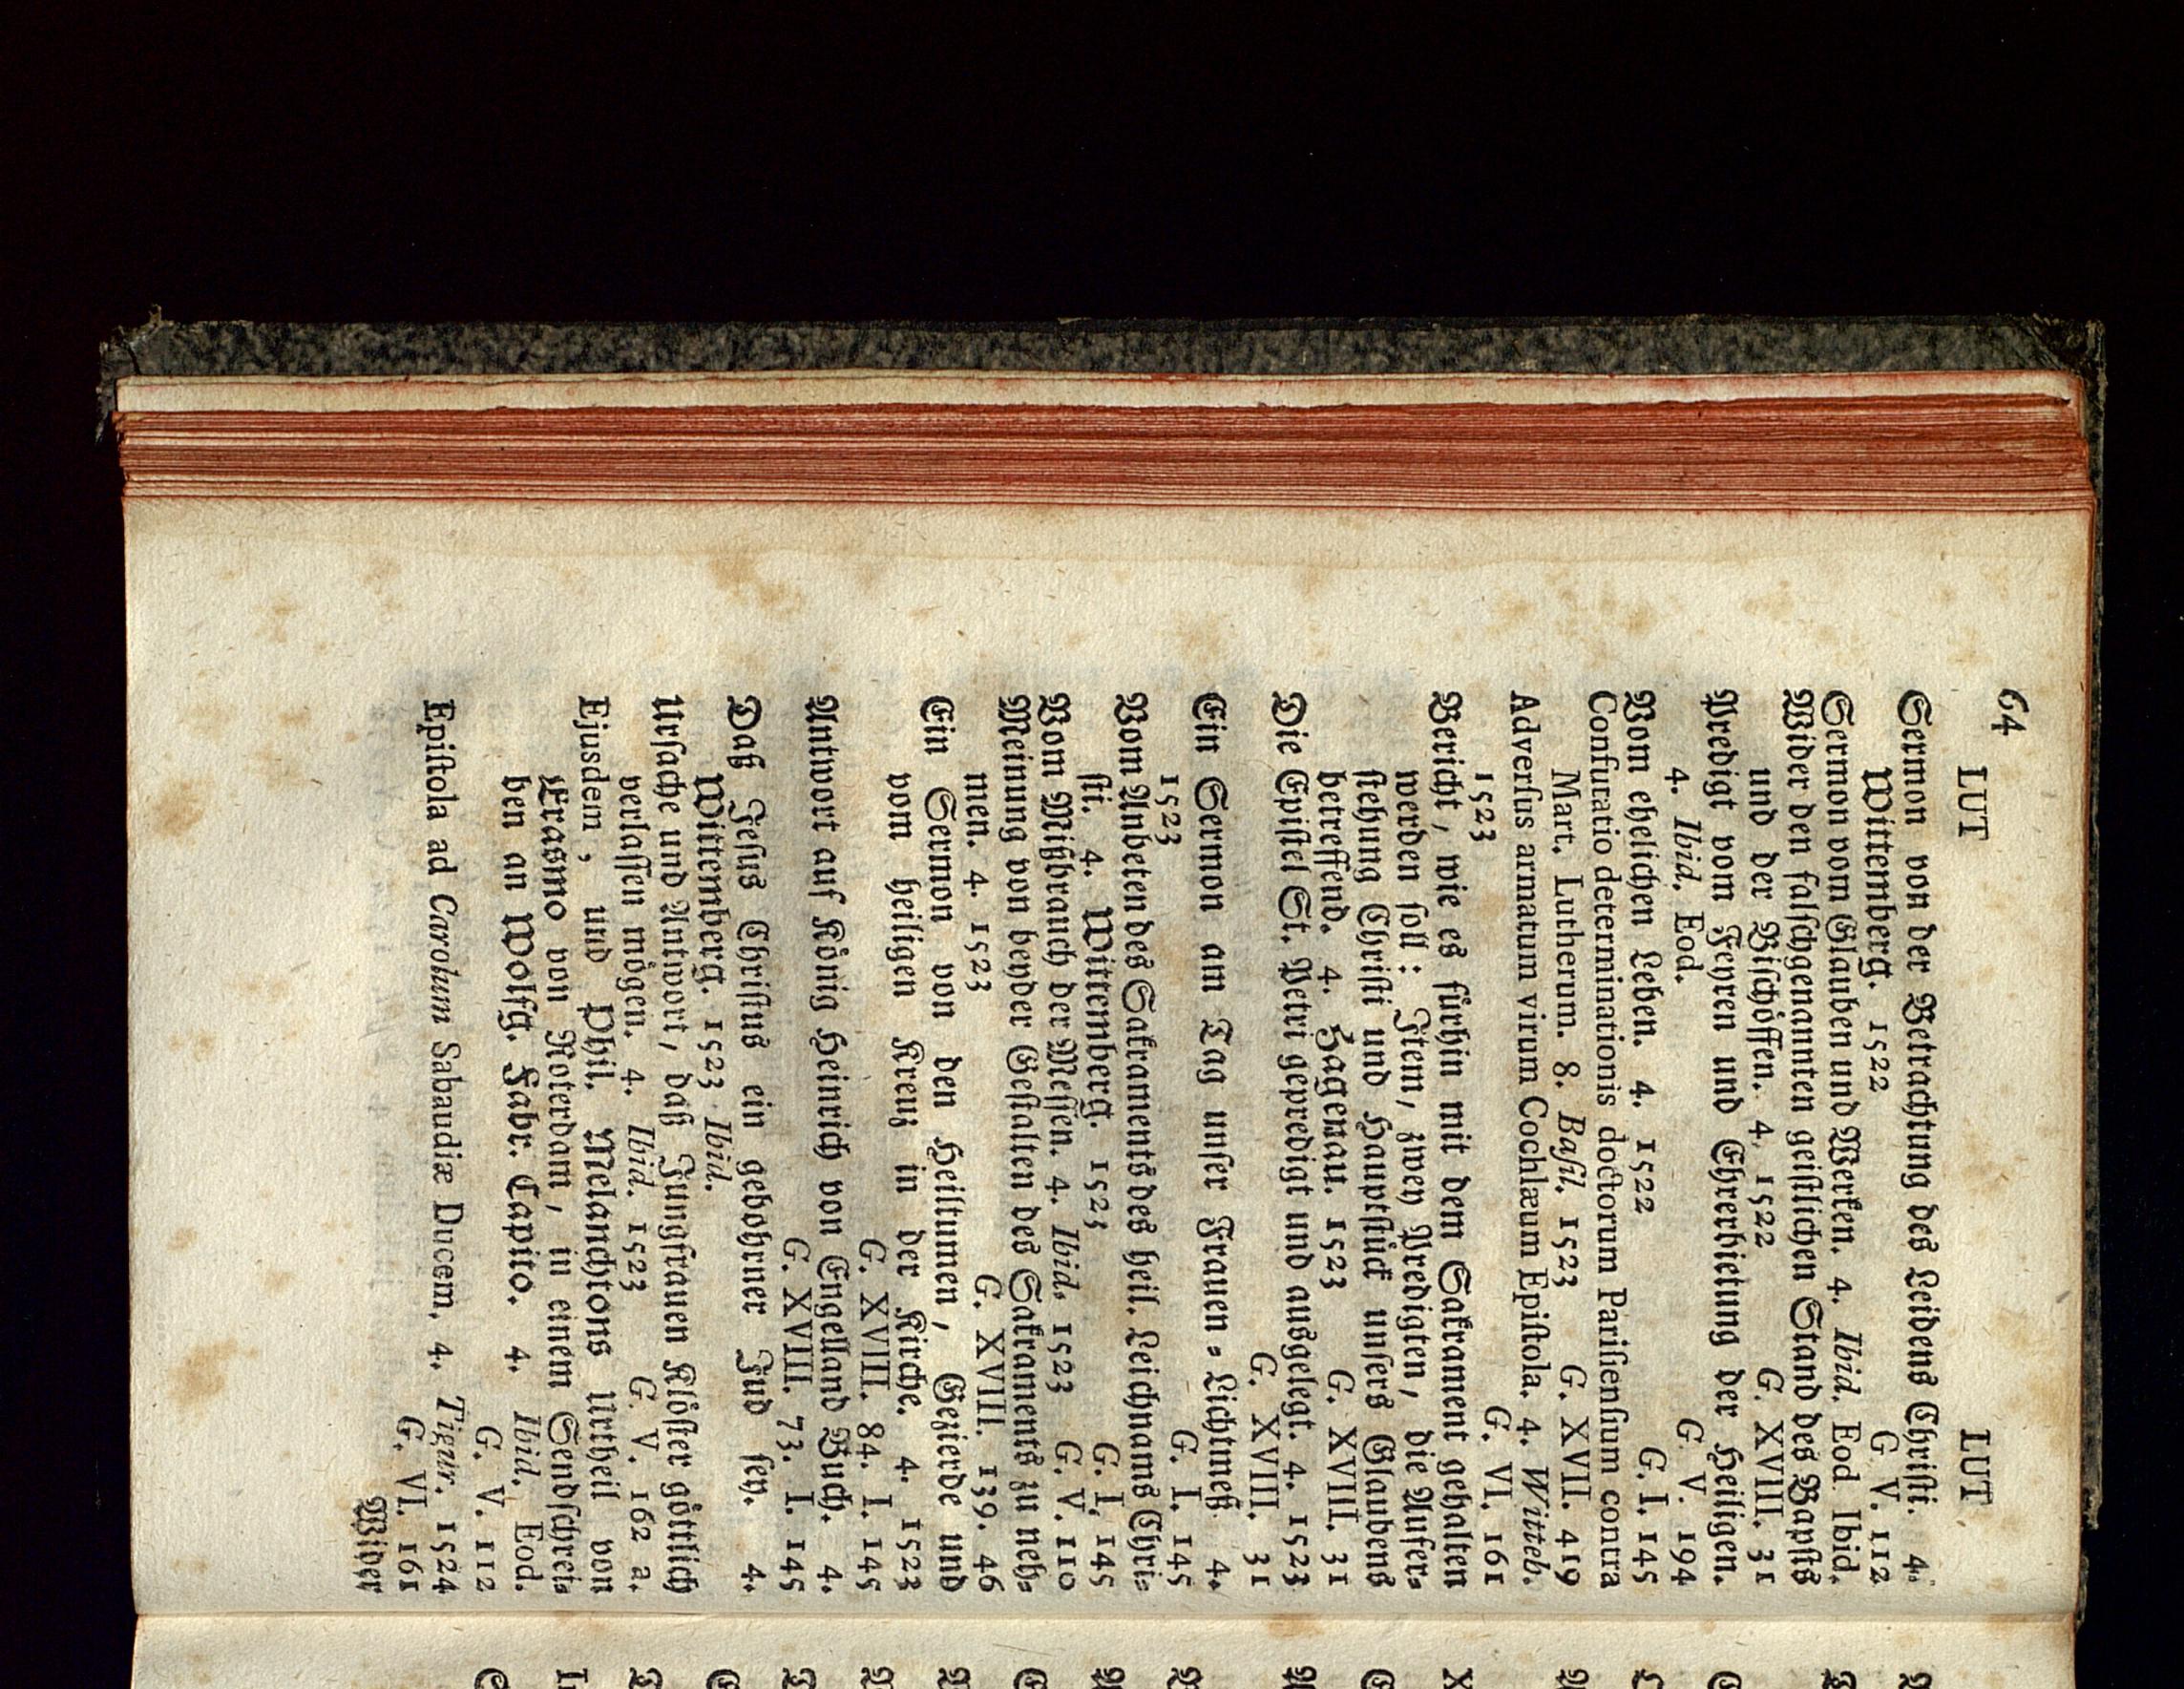 64 LUT LUT
Sermon von der Betrachtung des Leidens Christi. 4.
Wittemberg. 1522 G V. 112
Sermon vom Glauben und Werken. 4. Ibid. Eod. Ibid.
Wider den falschgenannten geistlichen Stand des Papsts
und der Bischöffen. 4. 1522 G. XVIII. 31
Predigt vom Feyren und Ehrerbietung der Heiligen.
4. Ibid. Eod. G. V. 194
Vom ehelichen Leben. 4. 1522 G. I. 145
Confutatio determinationis doctorum Parisiensium contra
Mart. Lutherum. 8. Basil. 1523 G. XVII. 419
Adversus armatum virum Cochlæum Epistola. 4. Witteb.
1523 G. VI. 161
Bericht, wie es fürhin mit dem Sakrament gehalten
werden soll: Item, zwey Predigten, die Aufer-
stehung Christi und Hauptstück unsers Glaubens
betreffend. 4. Hagenau. 1523 G. XVIII. 31
Die Epistel St. Petri gepredigt und ausgelegt. 4. 1523
G. XVIII. 31
Ein Sermon am Tag unser Frauen-Lichtmeß. 4.
1523 G. I. 145
Vom Anbeten des Sakraments des heil. Leichnams Chri-
sti. 4. Wittemberg. 1523 G. I. 145
Vom Mißbrauch der Messen. 4. Ibid. 1523 G. V. 110
Meinung von beyder Gestalten des Sakraments zu neh-
men. 4. 1523 G. XVIII. 139. 46
Ein Sermon von den Heiltumen, Gezierde und
vom heiligen Kreuz in der Kirche. 4. 1523
G. XVIII. 84. I. 145
Antwort auf König Heinrich von Engelland Buch. 4.
G. XVIII. 73. I. 145
Daß Jesus Christus ein gebohrner Jud sey. 4.
Wittemberg. 1523 Ibid.
Ursache und Antwort, daß Jungfrauen Klöster göttlich
verlassen mögen. 4. Ibid. 1523 G. V. 162 a.
Ejusdem, und Phil. Melanchtons Urtheil von
Erasmo von Roterdam, in einem Sendschrei-
ben an Wolfg. Fabr. Capito. 4. Ibid. Eod.
G. V. 112
Epistola ad Carolum Sabaudiæ Ducem. 4. Tigur. 1524
G. VI. 161
Wider